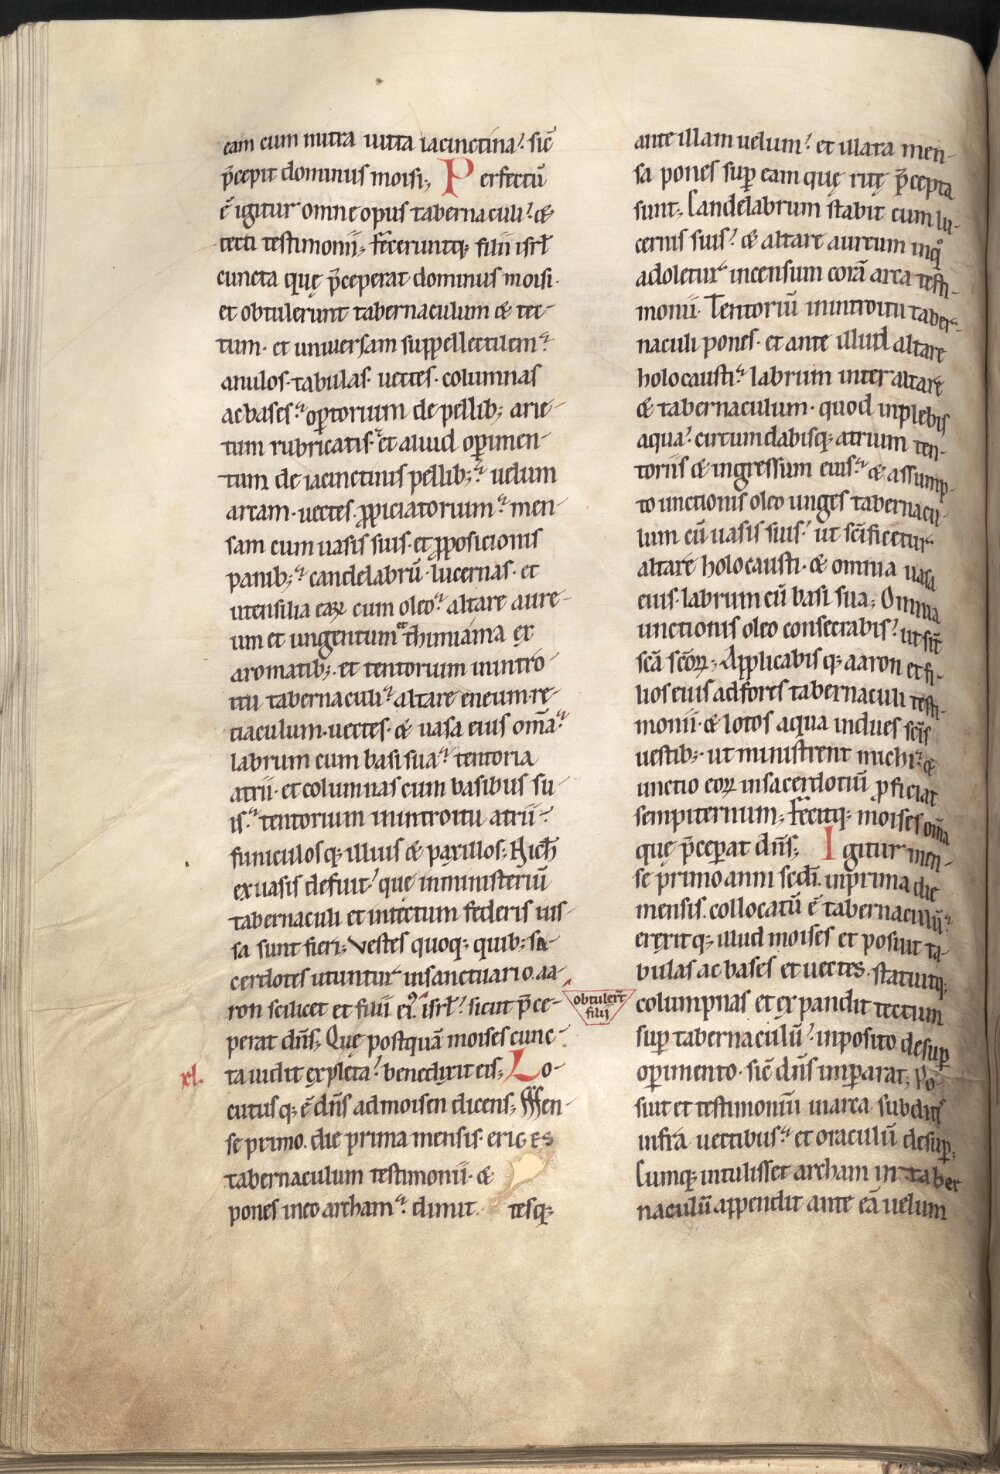 eam cum mitra uitta iacinctina. sic̄
p̄cepit dominus moisi; Perfectū
ē igitur omne opus tabernaculi. &
tecti testimonii; Feceruntq; filii isrl̄
cuncta quę p̄ceperat dominus moisi.
et obtulerunt tabernaculum & tec-
tum. et uniuersam suppellectilem.
anulos. tabulas. uectes. columnas
ac bases. op̄torium de pellib; arie-
tum rubricatis. et aliud op̄imen-
tum de iacinctinis pellib;. uelum
arcam. uectes. ꝓpiciatorium. men-
sam cum uasis suis. et ꝓposicionis
panib;. candelabrū. lucernas. et
utensilia eaꝝ cum oleo. altare aure-
um et ungentum & thimiama ex
aromatib;. et tentorium inintro-
itu tabernaculi. altare eneum. re-
tiaculum. uectes. & uasa eius om̄a.
labrum cum basi sua. tentoria
atrii. et columnas cum basibus su-
is. tentorium inintroitu atrii.
funiculosq; illius & paxillos; Nich̄
exuasis defuit. que inministeriū
tabernaculi et intectum federis ius-
sa sunt fieri; Vestes quoq; quib; sa-
cerdotes utuntur insanctuario. aa-
ron scilicet et filii ei᷒. isrl̄. sicut p̄ce-
perat dn̄s; Quę postquā moises cunc-
ta uidit expleta. benedixit eis; Lo-
cutusq; ē dn̄s ad moisen dicens; Men-
se primo. die prima mensis. eriges
tabernaculum testimonii. &
pones ineo archam. dimit tesq;
obtulerт̄
filij
xl.
ante illam uelum. et illata men-
sa pones sup̄ eam quę ritę p̄cepta
sunt; Candelabrum stabit cum lu-
cernis suis. & altare aureum inq̊
adoletur incensum corā arca testi-
monii. Tentoriū inintroitu taber-
naculi pones. et ante illud altare
holocausti. labrum inter altare
& tabernaculum. quod inplebis
aqua. circumdabisq; atrium ten-
toriis & ingressum eius. & assump-
to unctionis oleo unges tabernacu-
lum cū uasis suis. ut sc̄ificetur
altare holocausti. & omnia uasa
eius. labrum cū basi sua; Omnia
unctionis oleo consecrabis. ut sīt
sc̄a sc̄oꝝ; Applicabisq; aaron et fi-
lios eius ad fores tabernaculi testi-
monii. & lotos aqua indues sc̄is
uestib;. ut ministrent michi. &
unctio eoꝝ insacerdotiū ꝓficiat
sempiternum; Fecitq; moises om̄a
quę p̄cep̄at dn̄s; Igitur men-
se primo anni sc̄di. inprima die
mensis. collocatū ē tabernaculū.
erexitq; illud moises et posuit ta-
bulas ac bases et uectes. statuitq;
columpnas et expandit tectum
sup̄ tabernaculū. inposito desup̄
op̄imento. sic̄ dn̄s imp̄arat; Po-
suit et testimoniū inarca subditis
infra uectibus. et oraculū desup̄;
Cumq; intulisset archam in taber
naculū appendit ante eā uelum